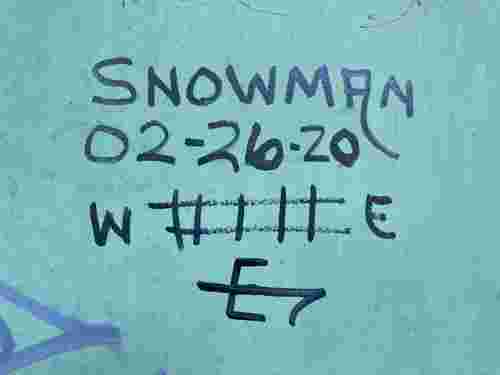 SNOWMAN
02-26-20
W E
E